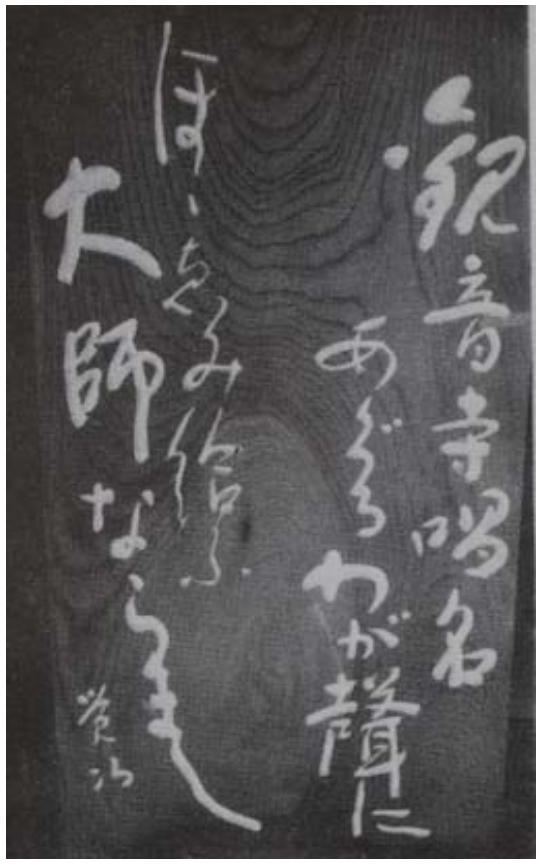 観音寺唱名
あぐるわが聲に
ほゝゑみ給ふ
大師ならまし